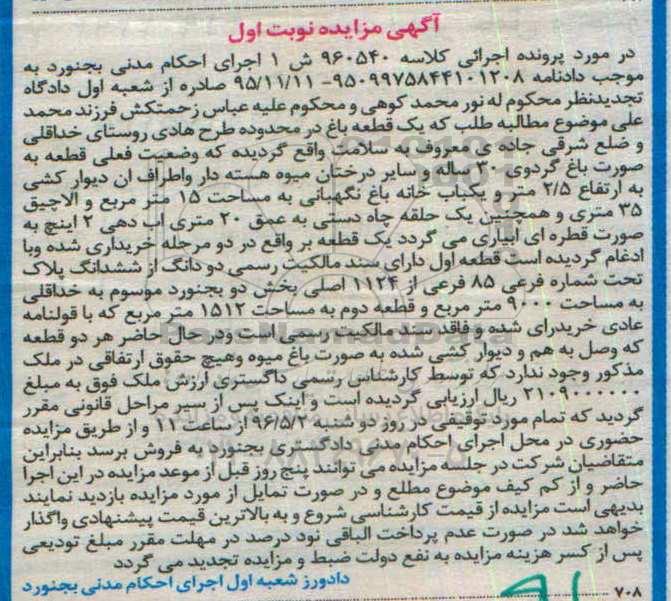 آگهی مزایده نوبت اول
در مورد پرونده اجرائی کلاسه ۹۶۰۵۴۰ ش ۱ اجرای احکام مدنی بجنورد به
موجب دادنامه ۹۵۰۹۹۷۵۸۴۴۱۰۱۲۰۸- ۹۵/۱۱/۱۱ صادره از شعبه اول دادگاه
تجدیدنظر محکوم له نور محمد کوهی و محکوم علیه عباس زحمتکش فرزند محمد
علی موضوع مطالبه طلب که یک قطعه باغ در محدوده طرح هادی روستای خداقلی
و ضلع شرقی جاده ی معروف به سلامت واقع گردیده که وضعیت فعلی قطعه به
صورت باغ گردوی ۳۰ ساله و سایر درختان میوه هسته دار واطراف ان دیوار کشی
به ارتفاع ۲/۵ متر و یکباب خانه باغ نگهبانی به مساحت ۱۵ متر مربع و الاچیق
۳۵ متری و همچنین یک حلقه چاه دستی به عمق ۲۰ متری اب دهی ۲ اینچ به
صورت قطره ای آبیاری می گردد یک قطعه بر واقع در دو مرحله خریداری شده وبا
ادغام گردیده است قطعه اول دارای سند مالکیت رسمی دو دانگ از ششدانگ پلاک
تحت شماره فرعی ۸۵ فرعی از ۱۱۲۴ اصلی بخش دو بجنورد موسوم به خداقلی
به مساحت ۹۰۰۰ متر مربع و قطعه دوم به مساحت ۱۵۱۲ متر مربع که با قولنامه
عادی خریدرای شده و فاقد سند مالکیت رسمی است ودر حال حاضر هر دو قطعه
که وصل به هم و دیوار کشی شده به صورت باغ میوه وهیچ حقوق ارتفاقی در ملک
مذکور وجود ندارد که توسط کارشناس رسمی داگستری ارزش ملک فوق به مبلغ
۲۱۰۹۰۰۰۰۰۰ ریال ارزیابی گردیده است و اینک پس از سیر مراحل قانونی مقرر
گردید که تمام مورد توقیفی در روز دو شنبه ۹۶/۵/۲ از ساعت ۱۱ و از طریق مزایده
حضوری در محل اجرای احکام مدنی دادگستری بجنورد به فروش برسد بنابراین
متقاضیان شرکت در جلسه مزایده می توانند پنج روز قبل از موعد مزایده در این اجرا
حاضر و از کم کیف موضوع مطلع و در صورت تمایل از مورد مزایده بازدید نمایند
بدیهی است مزایده از قیمت کارشناسی شروع و به بالاترین قیمت پیشنهادی واگذار
خواهد شد در صورت عدم پرداخت الباقی نود درصد در مهلت مقرر مبلغ تودیعی
پس از کسر هزینه مزایده به نفع دولت ضبط و مزایده تجدید می گردد
دادورز شعبه اول اجرای احکام مدنی بجنورد
۷۰۸